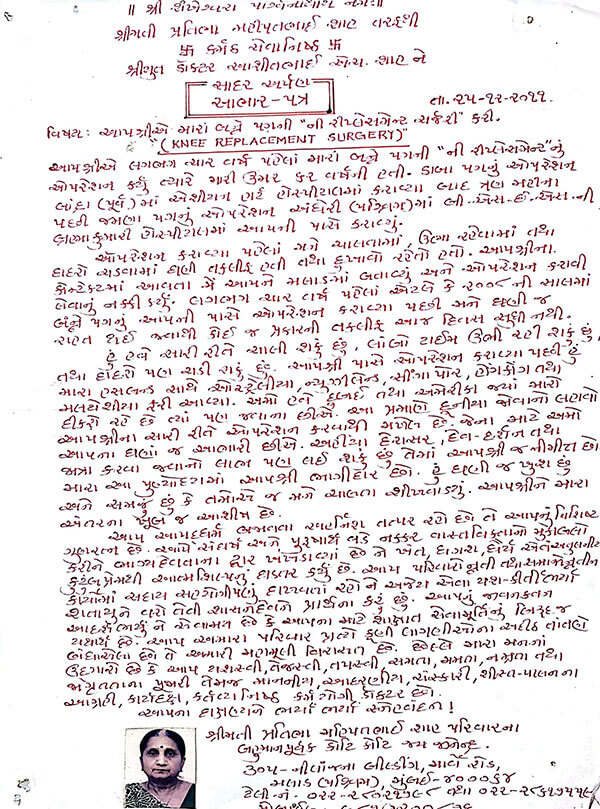 ॥ શ્રી શંખેશ્વરા પાર્શ્વનાથાય નમઃ ॥
શ્રીમતી પ્રતિભા મહીપતભાઈ શાહ તરફથી
卐 કર્મઠ સેવાનિષ્ઠ 卐
શ્રીયુત ડૉક્ટર આશીતભાઈ એચ. શાહ ને
સાદર અર્પણ
આભાર-પત્ર
તા. ૨૫-૧૨-૨૦૧૧.
વિષય: આપશ્રીએ મારાં બન્ને પગની "ની રીપ્લેસમેન્ટ સર્જરી" કરી.
"(KNEE REPLACEMENT SURGERY)"
આપશ્રીએ લગભગ ચાર વર્ષ પહેલાં મારાં બન્ને પગની "ની રીપ્લેસમેન્ટ"નું
ઓપરેશન કર્યું ત્યારે મારી ઉમર ૬૨ વર્ષની હતી. ડાબા પગનું ઓપરેશન
બાંદ્રા (પૂર્વ)માં એશીયન હાર્ટ હોસ્પીટાલમાં કરાવ્યા બાદ ત્રણ મહીના
પછી જમણા પગનું ઓપરેશન અંધેરી (પશ્ચિમ)માં બી.એસ.ઈ.એસ.ની
બ્રહ્માકુમારી હોસ્પીટાલમાં આપની પાસે કરાવ્યું.
ઓપરેશન કરાવ્યા પહેલાં મને ચાલવામાં, ઉભા રહેવામાં તથા
દાદરો ચડવામાં ઘણી તકલીફ હતી તથા દુખાવો રહેતો હતો. આપશ્રીના
કોન્ટેક્ટમાં આવતા મેં આપને મલાડમાં બતાવ્યું અને ઓપરેશન કરાવી
લેવાનું નક્કી કર્યું. લગભગ ચાર વર્ષ પહેલાં એટલે કે ૨૦૦૮ની સાલમાં
બન્ને પગનું આપની પાસે ઓપરેશન કરાવ્યા પછી મને ઘણી જ
રાહત થઈ જવાથી કોઈ જ પ્રકારની તકલીફ આજ દિવસ સુધી નથી.
હું હવે સારી રીતે ચાલી શકું છું, લાંબો ટાઈમ ઉભી રહી શકું છું,
તથા દાદરો પણ ચડી શકું છું. આપશ્રી પાસે ઓપરેશન કરાવ્યા પછી હું
મારા હસબન્ડ સાથે ઓસ્ટ્રેલીયા, ન્યુઝીલેન્ડ, સીંગાપોર, હોંગકોંગ તથા
મલયેશીયા ફરી આવ્યા. અમો હવે દુબઈ તથા અમેરીકા જ્યાં મારો
દીકરો રહે છે ત્યાં પણ જવાના છીએ. આ પ્રમાણે દુનીયા જોવાનો લહાવો
આપશ્રીના સારી રીતે ઓપરેશન કરવાથી મળેલ છે. જેના માટે અમો
આપના ઘણાં જ આભારી છીએ. અહીંયા દેરાસર, દેવ-દર્શન તથા
જાત્રા કરવા જવાનો લાભ પણ લઈ શકું છું તેમાં આપશ્રી જ નીમીત્ત છો.
મારા આ પુણ્યોદયમાં આપશ્રી ભાગીદાર છો. હું ઘણી જ ખુશ છું
અને સમજું છું કે તમોએ જ મને ચાલતા શીખવાડ્યું. આપશ્રીને મારા
અંતરના ખુબ જ આશીષ છે.
આપ આપદધર્મ બજાવતા સ્વર્ણનિશ તત્પર રહો છો તે આપનું વિશિષ્ટ
ગુણરત્ન છે. આપે સંઘર્ષ અને પુરુષાર્થ વડે નક્કર વાસ્તવિક્તાનો મુકાબલો
કરીને ભાગ્યદેવતાના દ્વાર ખખેડાવ્યાં છે ને ખંત,
પ્રેમથી આત્મશિલ્પનું ઘડતર કર્યું છે. આપ
સદાય સહયોગીપણું દાખવતાં રહો ને અજેય એવા યશ-કીર્તીભર્યા
શતાયુને વરો તેવી શાસનદેવને પ્રાર્થના કરું છું. આપનું જીવનકવન
આદર્શભર્યું ને સેવામય છે કે આપના માટે સાક્ષાત સેવામૂર્તિનું બિરૂદ જ
યથાર્થ છે. આપ અમારા પરિવાર પ્રત્યે કુણી લાગણીઓના અદીઠ તાંતણે
બંધાયેલા છો તે અમારી મહામૂલી વિરાસત છે. છેલ્લે મારા મનનાં
ઉદગારો છે કે આપ યશસ્વી, તેજસ્વી, તપસ્વી, સમતા, મમતા, નમ્રતા તથા
પૂજારી તેમજ માનનીય, આદરણીય, સંસ્કારી, શીસ્ત-પાલનના
આગ્રહી, કાર્યદક્ષ, કર્તવ્યનિષ્ઠ કર્મયોગી ડૉક્ટર છો.
આપના દાક્ષિણ્યને ભર્યા ભર્યા સ્નેહવંદન !
શ્રીમતી પ્રતિભા મહિપતભાઈ શાહ પરિવારના
બહુમાનપૂર્વક કોટિ કોટિ જય જીનેન્દ્ર.
૩૦૫-નીલાંજના બીલ્ડીંગ, માર્વે રોડ,
મલાડ (પશ્ચિમ) મુંબઈ-૪૦૦૦૬૪
ટેલી-નં. ૦૨૨- તથા ૦૨૨-